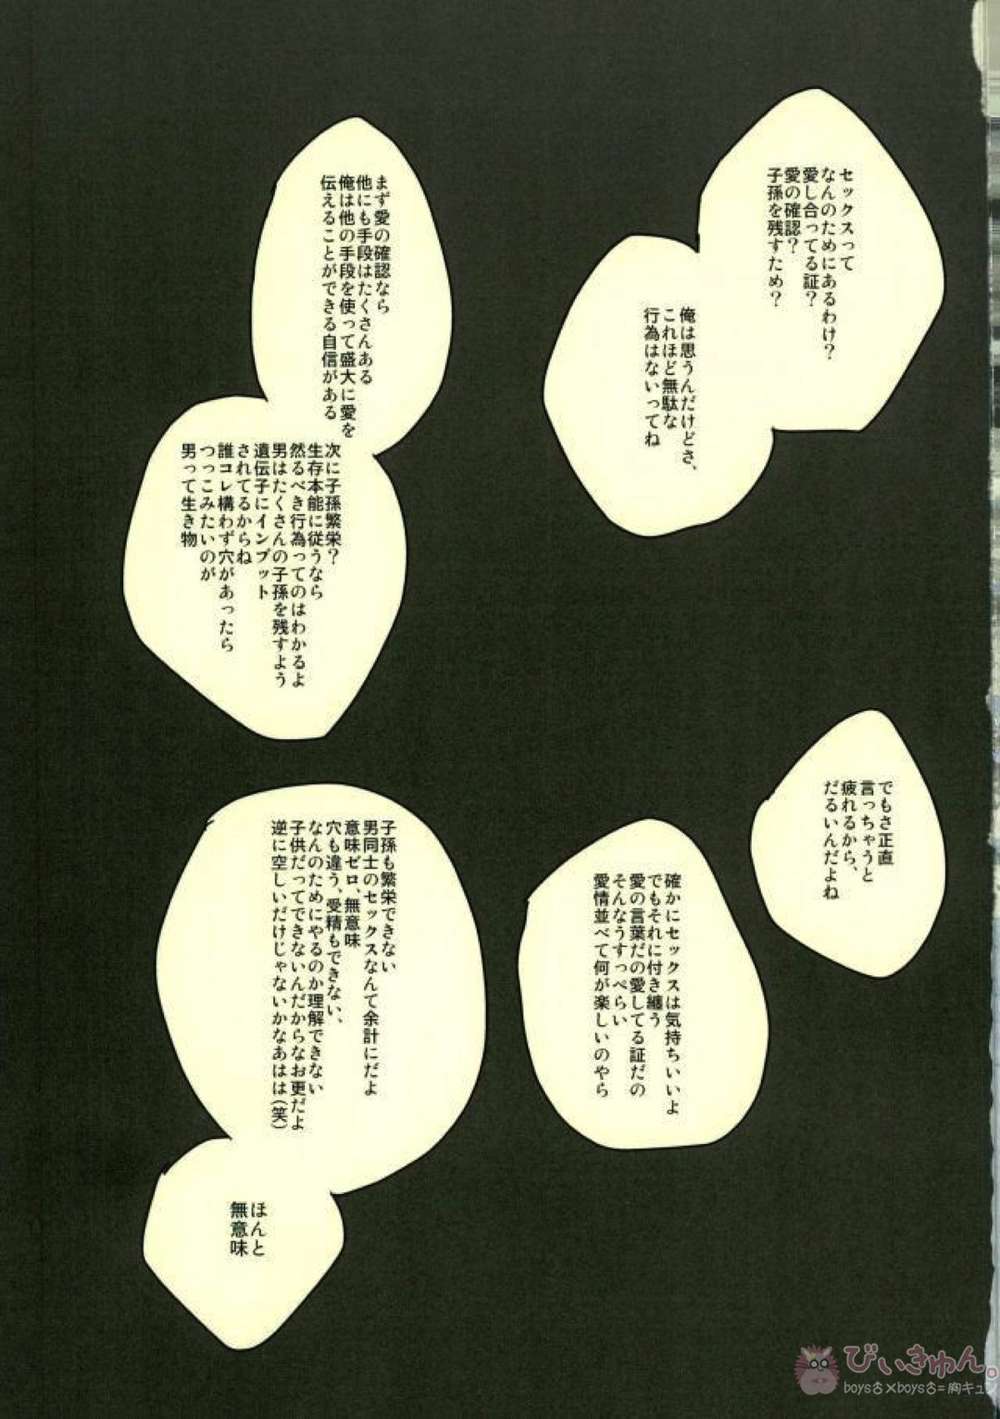 セックスって
なんのためにあるわけ？
愛し合ってる証？
愛の確認？
子孫を残すため？
俺は思うんだけどさ、
これほど無駄な
行為はないってね
まず愛の確認なら
他にも手段はたくさんある
俺は他の手段を使って盛大に愛を
伝えることができる自信がある
次に子孫繁栄？
生存本能に従うなら
然るべき行為ってのはわかるよ
男はたくさんの子孫を残すよう
遺伝子にインプット
されてるからね
誰コレ構わず穴があったら
つっこみたいのが
男って生き物
でもさ正直
言っちゃうと
疲れるから、
だるいんだよね
確かにセックスは気持ちいいよ
でもそれに付き纏う
愛の言葉だの愛してる証だの
そんなうすっぺらい
愛情並べて何が楽しいのやら
子孫も繁栄できない
男同士のセックスなんて余計にだよ
意味ゼロ、無意味
穴も違う、受精もできない、
なんのためにやるのか理解できない
子供だってできないんだからなお更だよ
逆に空しいだけじゃないかなあはは(笑)
ほんと
無意味
びぃきゅん。
boys♂×boys♂=胸キュン